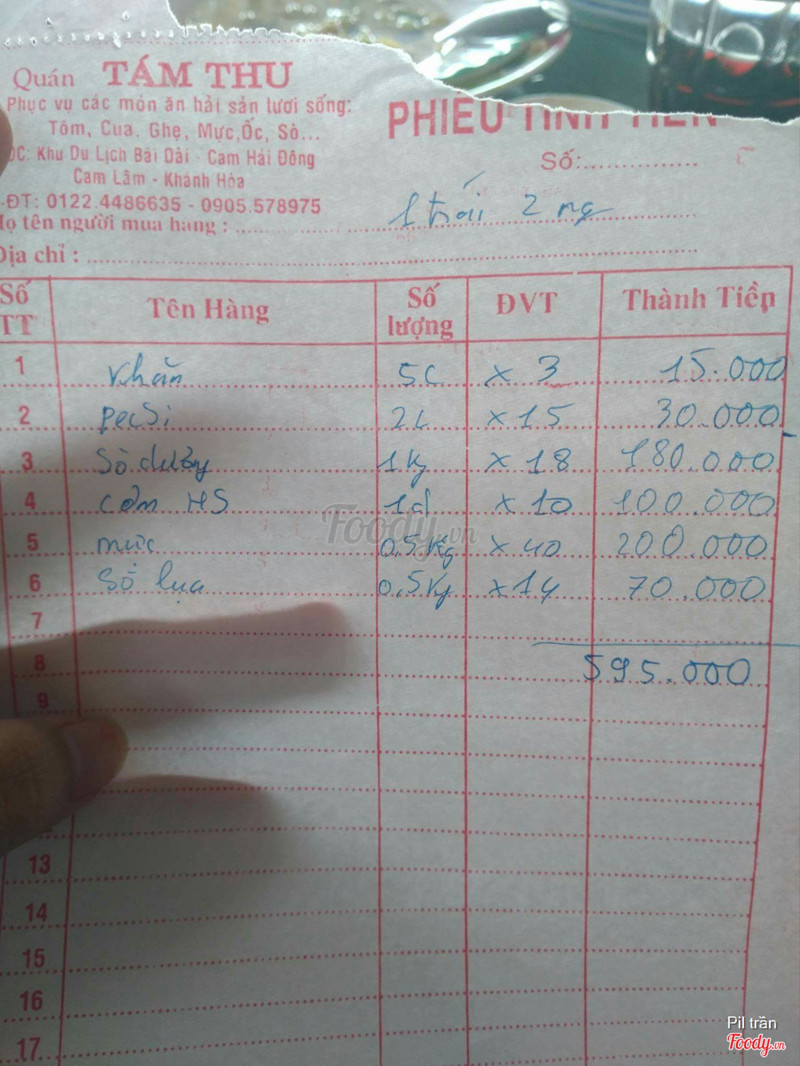 Quán TÁM THU
Phục vụ các món ăn hải sản tươi sống:
Tôm, Cua, Ghẹ, Mực, Ốc, Sò...
ĐC: Khu Du Lịch Bãi Dài - Cam Hải Đông
Cam Lâm - Khánh Hòa
ĐT: 0122.4486635 - 0905.578975
PHIẾU TÍNH TIỀN
Số:
Họ tên người mua hàng : 1 trái 2 ng
Địa chỉ :
Số TT Tên Hàng Số lượng ĐVT Thành Tiền
1 Khăn 5c x 3 15.000
2 pecsi 2L x 15 30.000
3 Sò dương 1kg x 18 180.000
4 cơm HS 1d x 10 100.000
5 mực 0,5kg x 40 200.000
6 Sò lụa 0,5kg x 14 70.000
7
8 595.000
9
13
14
15
16
17
Foody.vn
Pil trần
Foody.vn